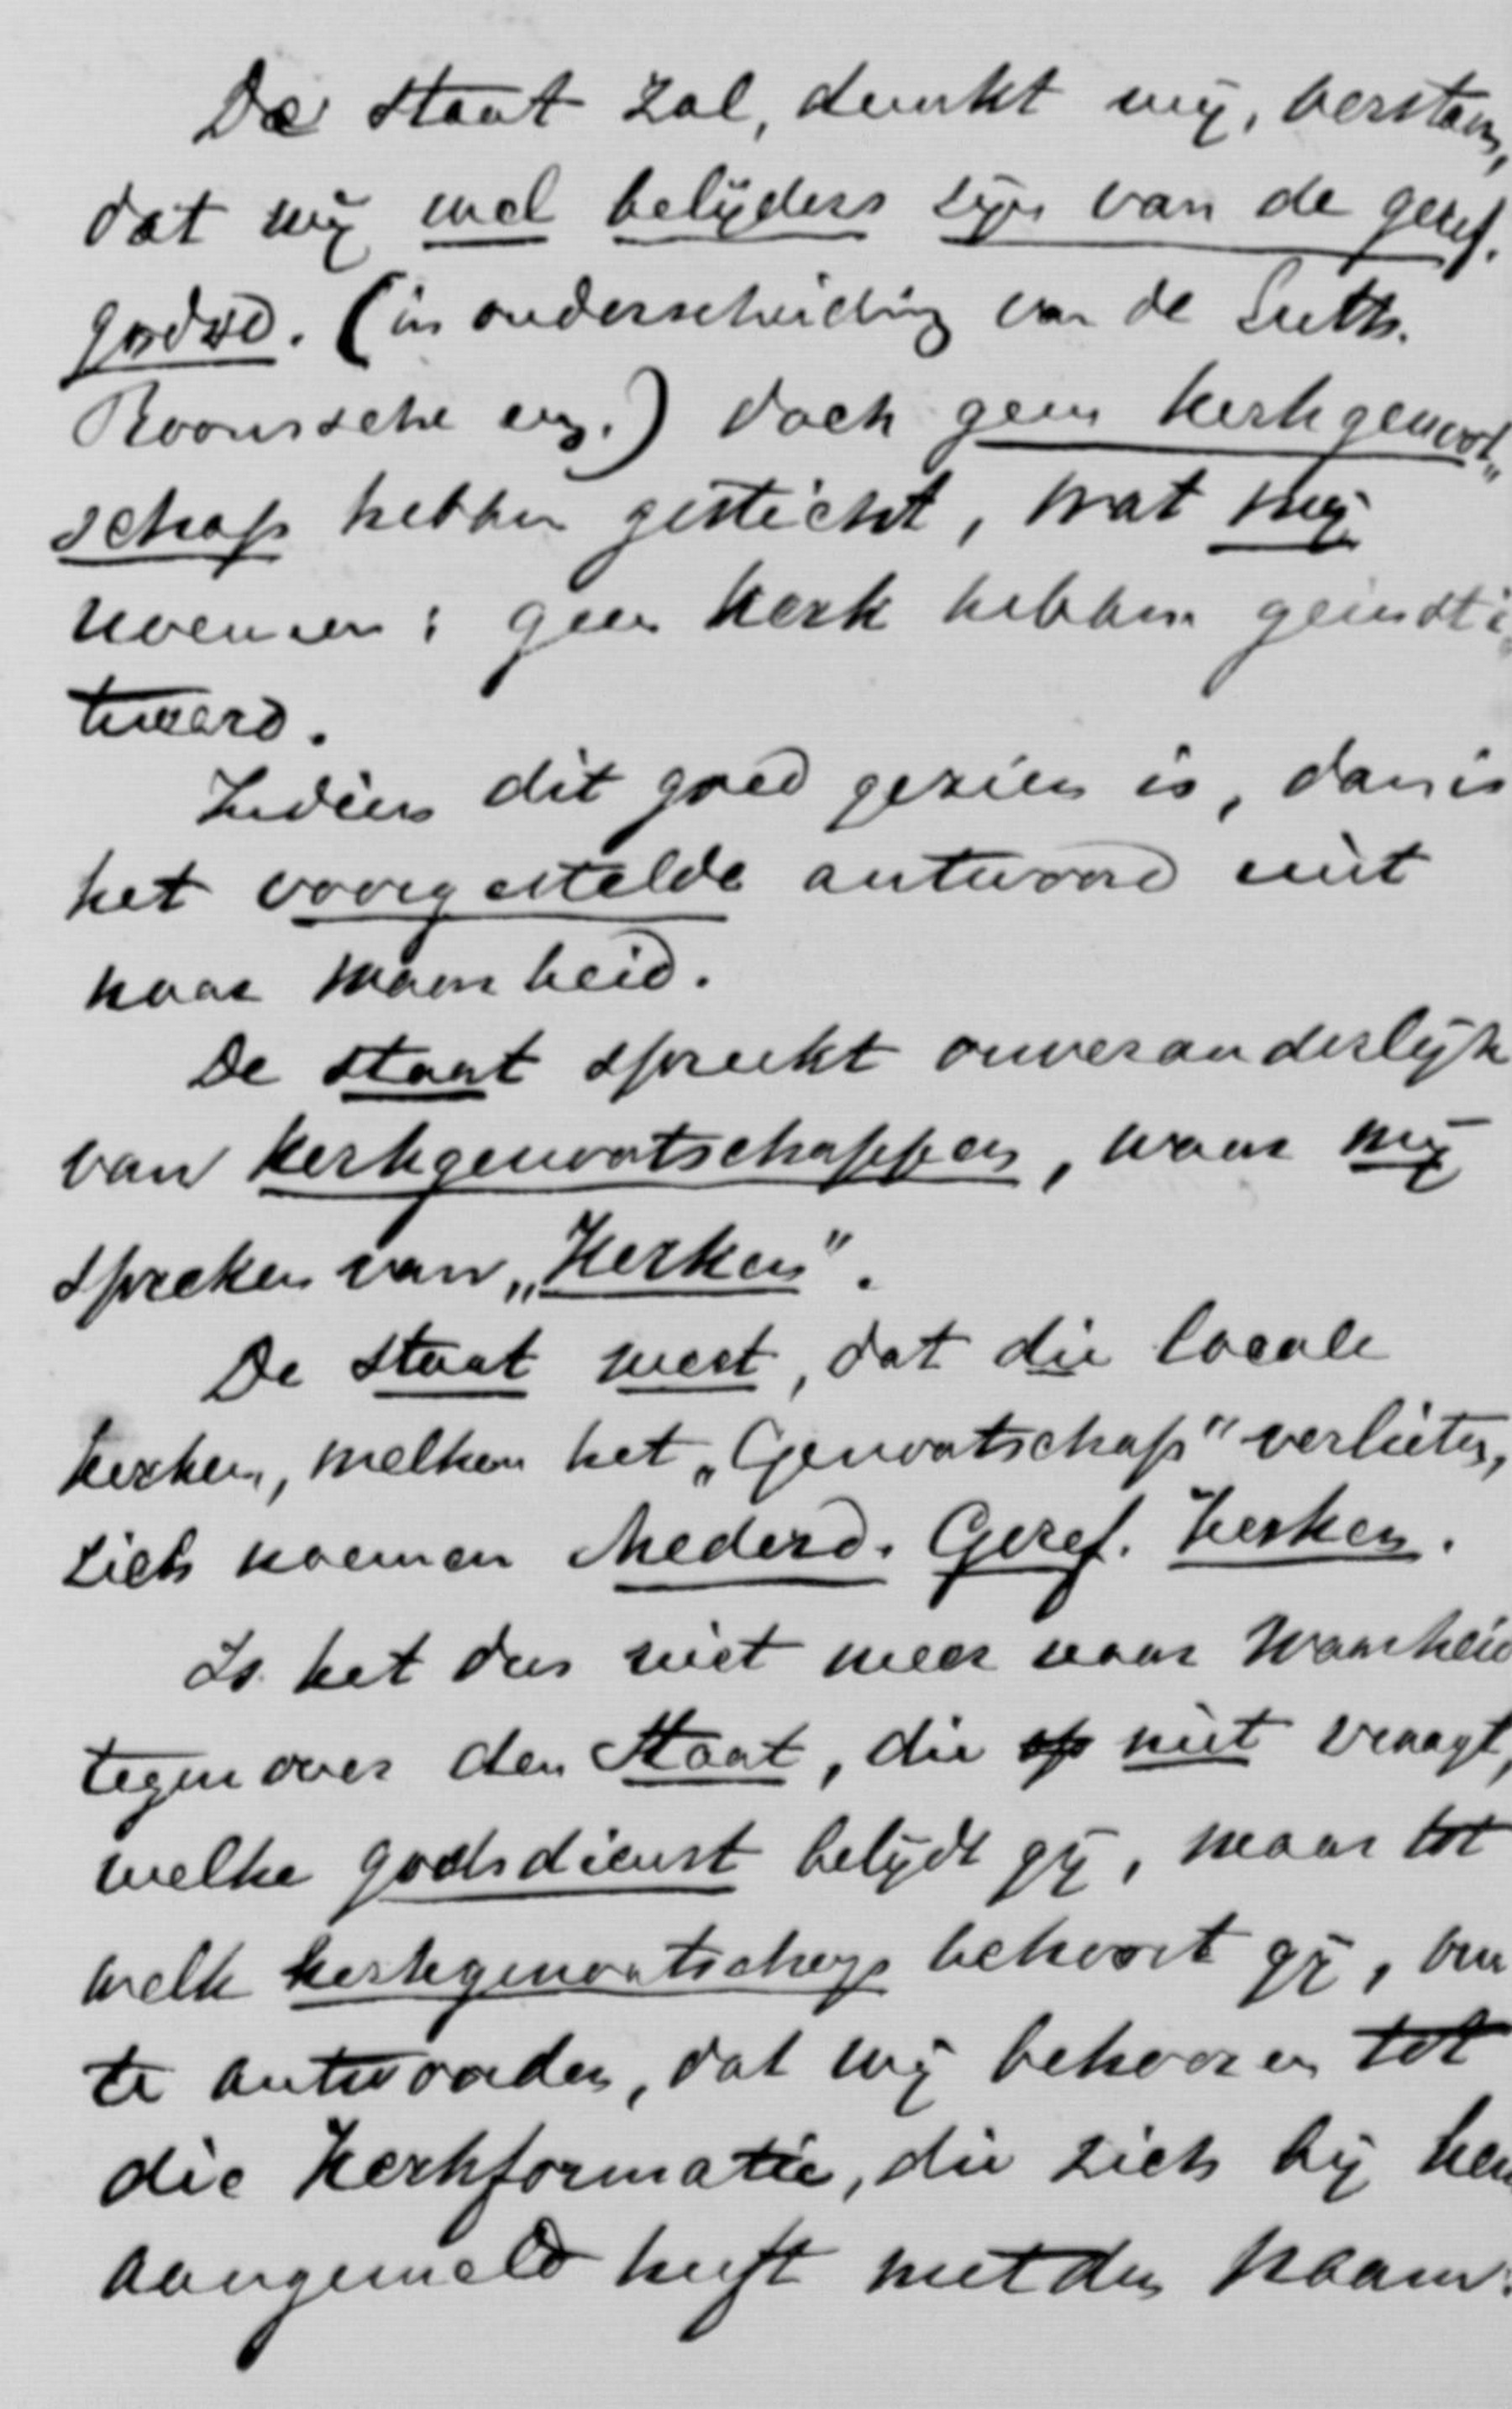 De Staat zal, dunkt mij, verstaan,
dat wij wel belijders zijn van de geref.
godsd. (in onderscheiding van de Luth.
Roomsche enz.) doch geen kerkgenoot„
schap hebben gesticht, wat wij
noemen: geen kerk hebben geinsti„
tueerd.
Indien dit goed gezien is, dan is
het voorgestelde antwoord niet
naar waarheid.
De staat spreekt onveranderlijk
van kerkgenootschappen, waar wij
spreken van „Kerken".
De staat weet, dat die locale
kerken, welken het „Genootschap" verlieten,
zich noemen Nederd. Geref. Kerken.
Is het dus niet meer naar waarheid
tegenover den Staat, die niet vraagt,
welke godsdienst belijdt gij, maar tot
welk kerkgenootschap behoort gij, om
te antwoorden, dat wij behooren tot
die Kerkformatie, die zich bij hem
aangemeld heeft met den naam: